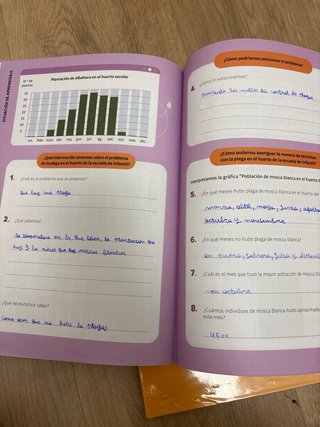 SITUACIÓN DE APRENDIZAJE
N.º de plantas
Plantación de albahaca en el huerto escolar
35
30
25
20
15
10
5
en. feb. mar. abr. may. jun. jul. ag. sep. oct. nov. dic.
¿Qué información tenemos sobre el problema
de la plaga en el huerto de la escuela de infantil?
1. ¿Cuál es el problema que se presenta?
que hay una plaga
2. ¿Qué sabemos?
la
en la que
la plantación que
hay y los meses que hay mosca blanca
¿Qué necesitamos saber?
como que no halla la plaga
¿Cómo podríamos solucionar el problema?
4. ¿Cómo lo solucionamos?
los medios de control de plagas
¿Cómo podemos averiguar la manera de terminar
con la plaga en el huerto de la escuela de infantil?
Interpretamos la gráfica "Población de mosca blanca en el huerto d
5. ¿En qué meses hubo plaga de mosca blanca en el huerto de
marzo, abril, mayo, junio, agosto
octubre y noviembre
6. ¿En qué meses no hubo plaga de mosca blanca?
en enero, febrero, julio y diciembre
7. ¿Cuál es el mes que tuvo la mayor población de mosca bl
en octubre
8. ¿Cuántos individuos de mosca blanca hubo aproximada
este mes?